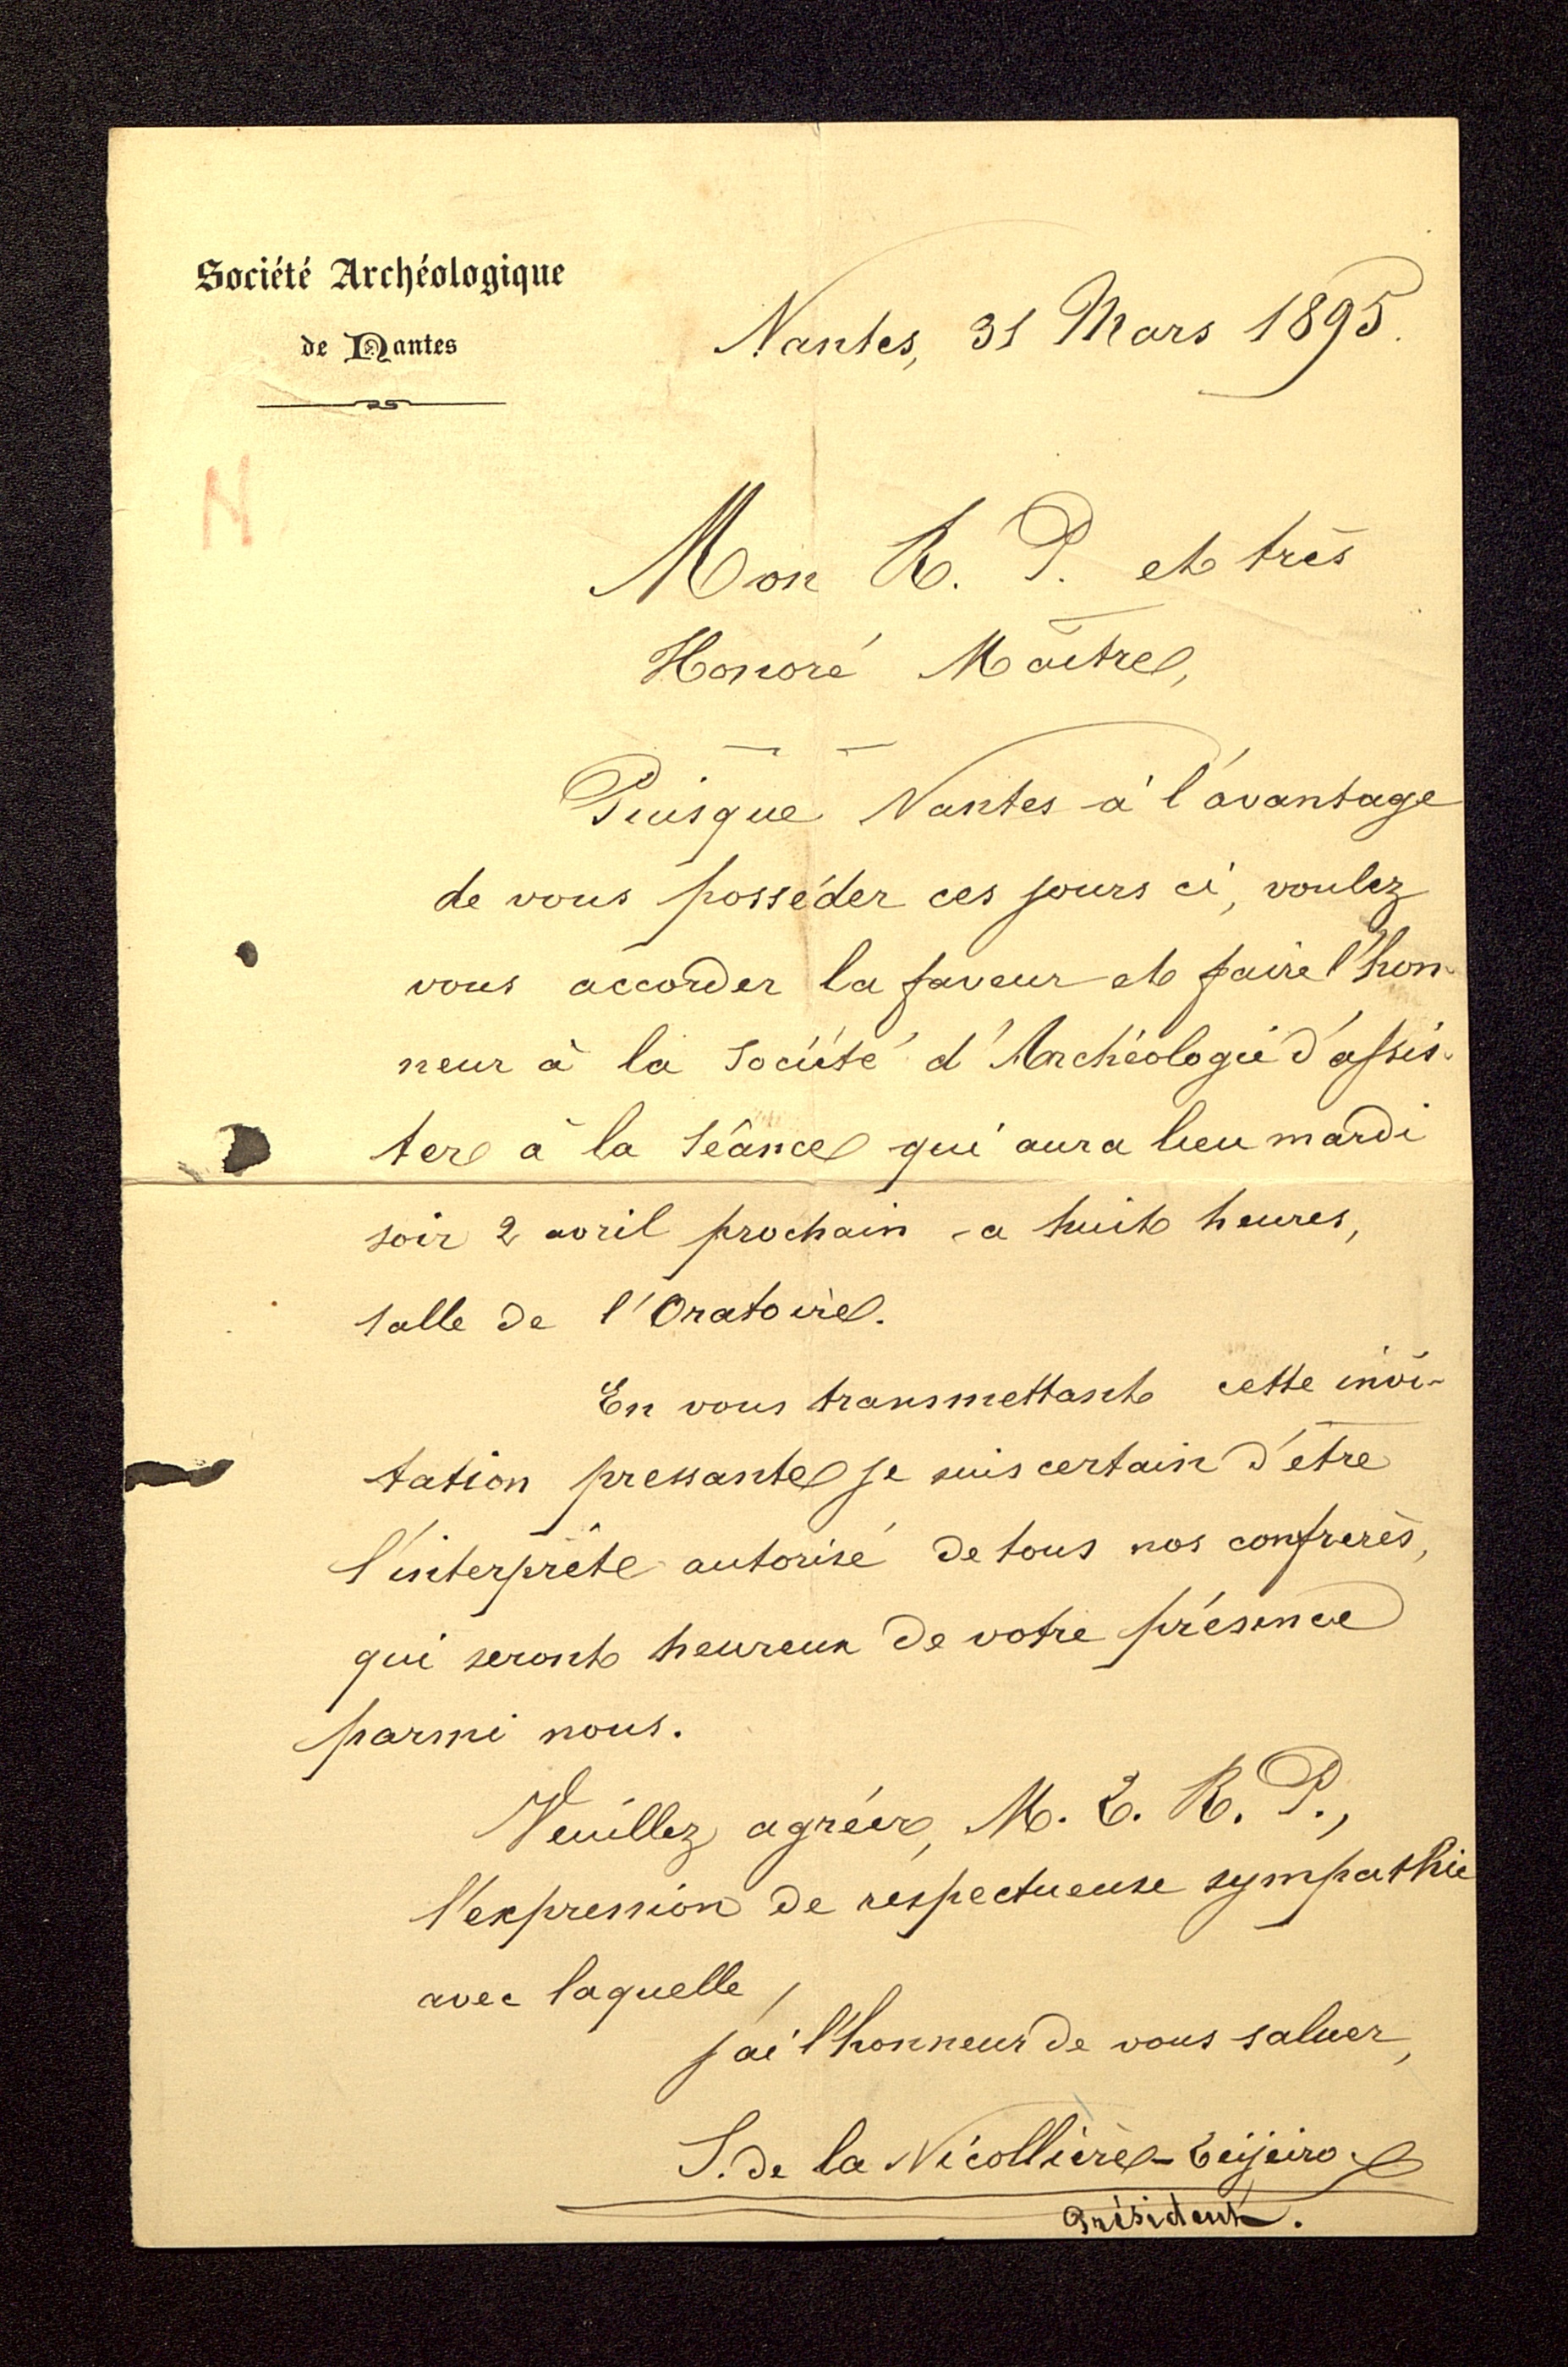 Société Archéologique
de Nantes
Nantes, 31 Mars 1895.
N
Mon R. P. et très
Honoré Maître,
Puisque Nantes a l'avantage
de vous posséder ces jours ci, voulez
vous accorder la faveur et faire l'hon-
neur à la Société d'Archéologie d'assis-
ter à la Séance qui aura lieu mardi
soir 2 avril prochain à huit heures,
salle de l'Oratoire.
En vous transmettant cette invi-
tation pressante je suis certain d'être
l'interprète autorisé de tous nos confrères,
qui seront heureux de votre présence
parmi nous.
Veuillez agréer, M. T. R. P.,
l'expression de respectueuse sympathie
avec laquelle,
j'ai l'honneur de vous saluer,
S. de la Nicollière-Teijeiro
Président.